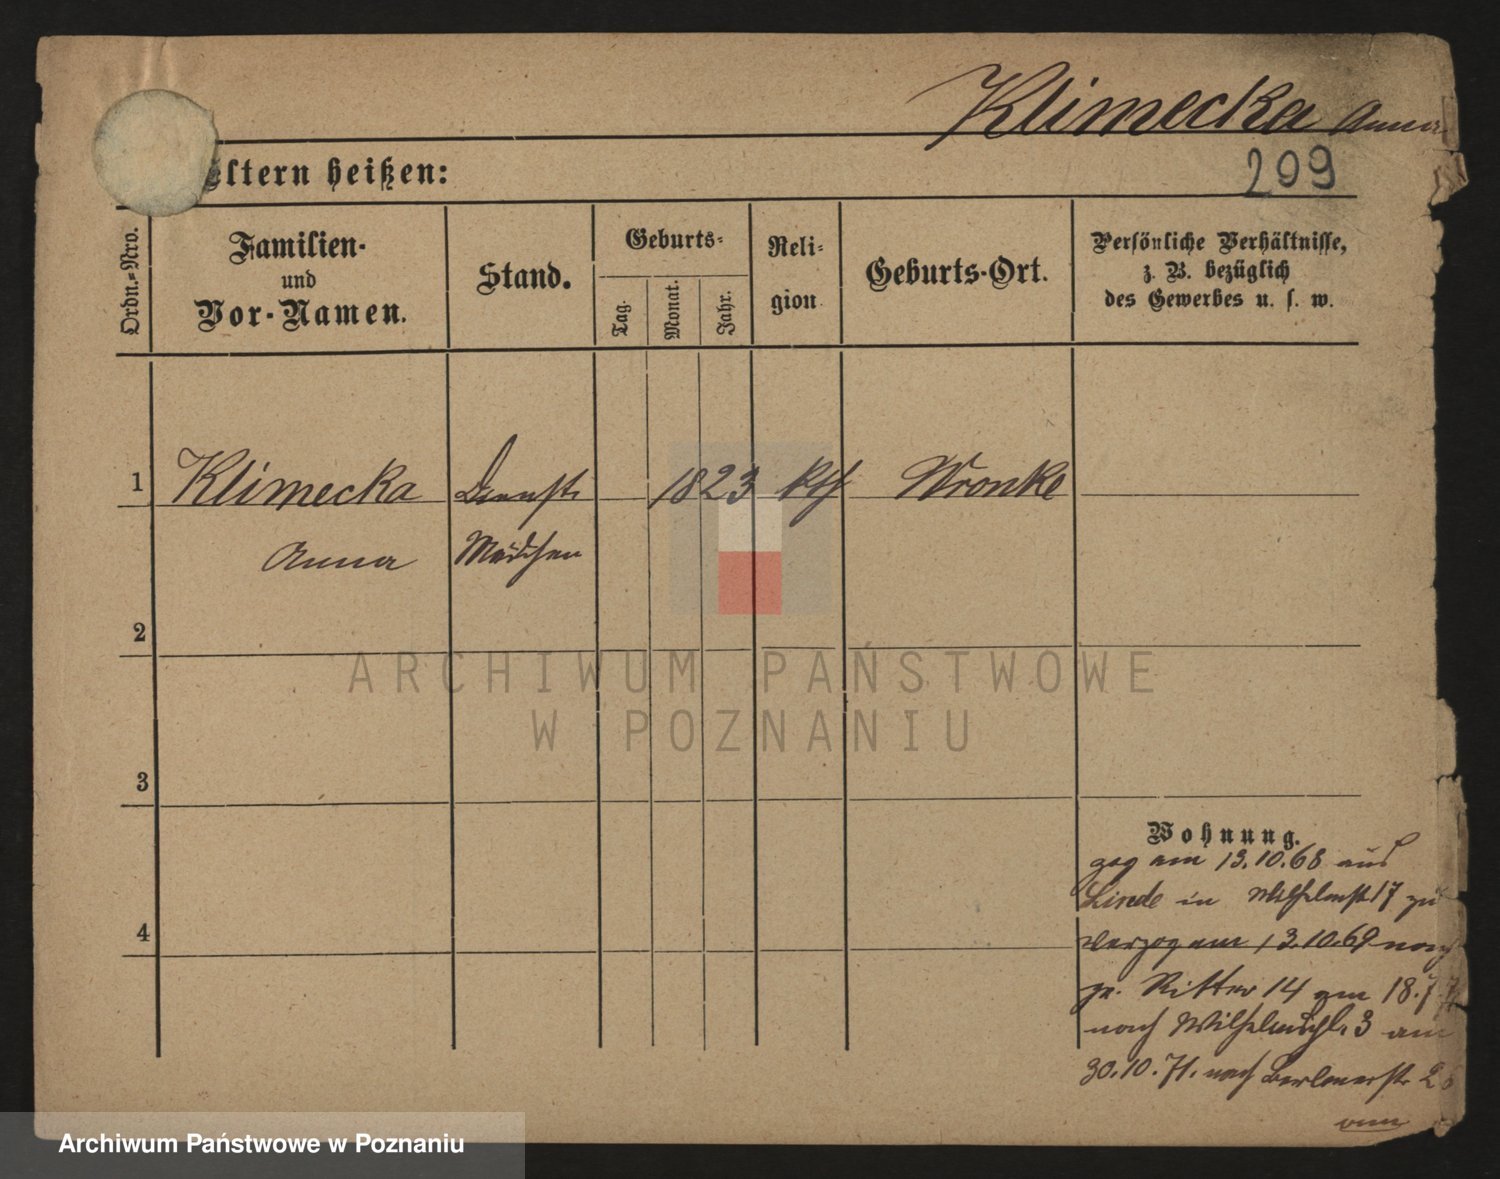 Klimecka Anna
209
Eltern heißen:
Ordn.-Nro.
Familien-
und
Vor-Namen.
Stand.
Geburts-
Tag.
Monat.
Jahr.
Reli-
gion
Geburts-Ort.
Persönliche Verhältnisse,
z. B. bezüglich
des Gewerbes u. s. w.
1 Klimecka Dienst 1823 kth Wronke
Anna Mädchen
2
ARCHIWUM PAŃSTWOWE
W POZNANIU
3
Wohnung.
zog am 13.10.68 aus
Linde in Wilhelmst 17 zu
verzog am 13.10.69 nach
gr. Ritter 14 am 18.7
nach Wilhelmspl. 3 am
30.10.71. nach Berlinerstr
4
Archiwum Państwowe w Poznaniu